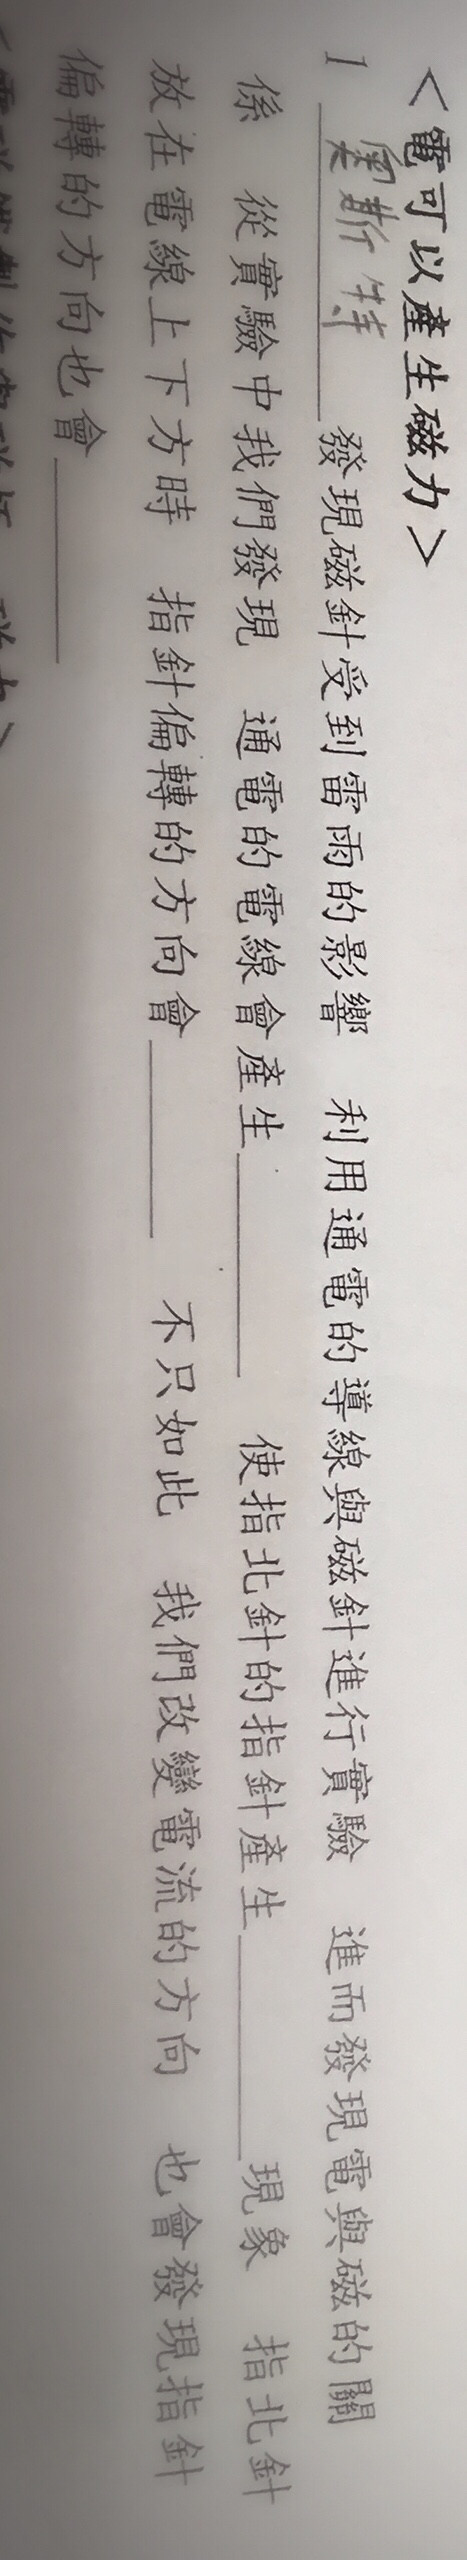 <電可以產生磁力>
1 奧斯特 發現磁針受到雷雨的影響 利用通電的導線與磁針進行實驗 進而發現電與磁的關
係 從實驗中我們發現 通電的電線會產生＿＿＿＿ 使指北針的指針產生＿＿＿＿現象 指北針
放在電線上下方時 指針偏轉的方向會＿＿＿＿ 不只如此 我們改變電流的方向 也會發現指針
偏轉的方向也會＿＿＿＿